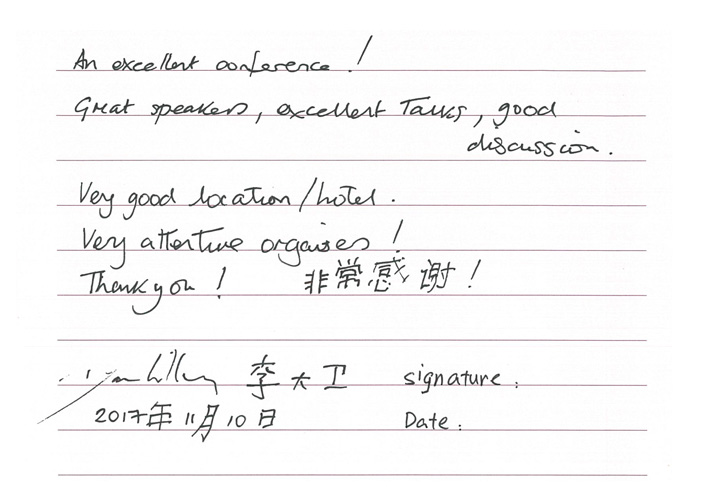 An excellent conference!
Great speakers, excellent Talks, good
discussion.
Very good location/hotel.
Very attentive organises!
Thank you! 非常感谢!
李大卫 signature:
2017年11月10日 Date: